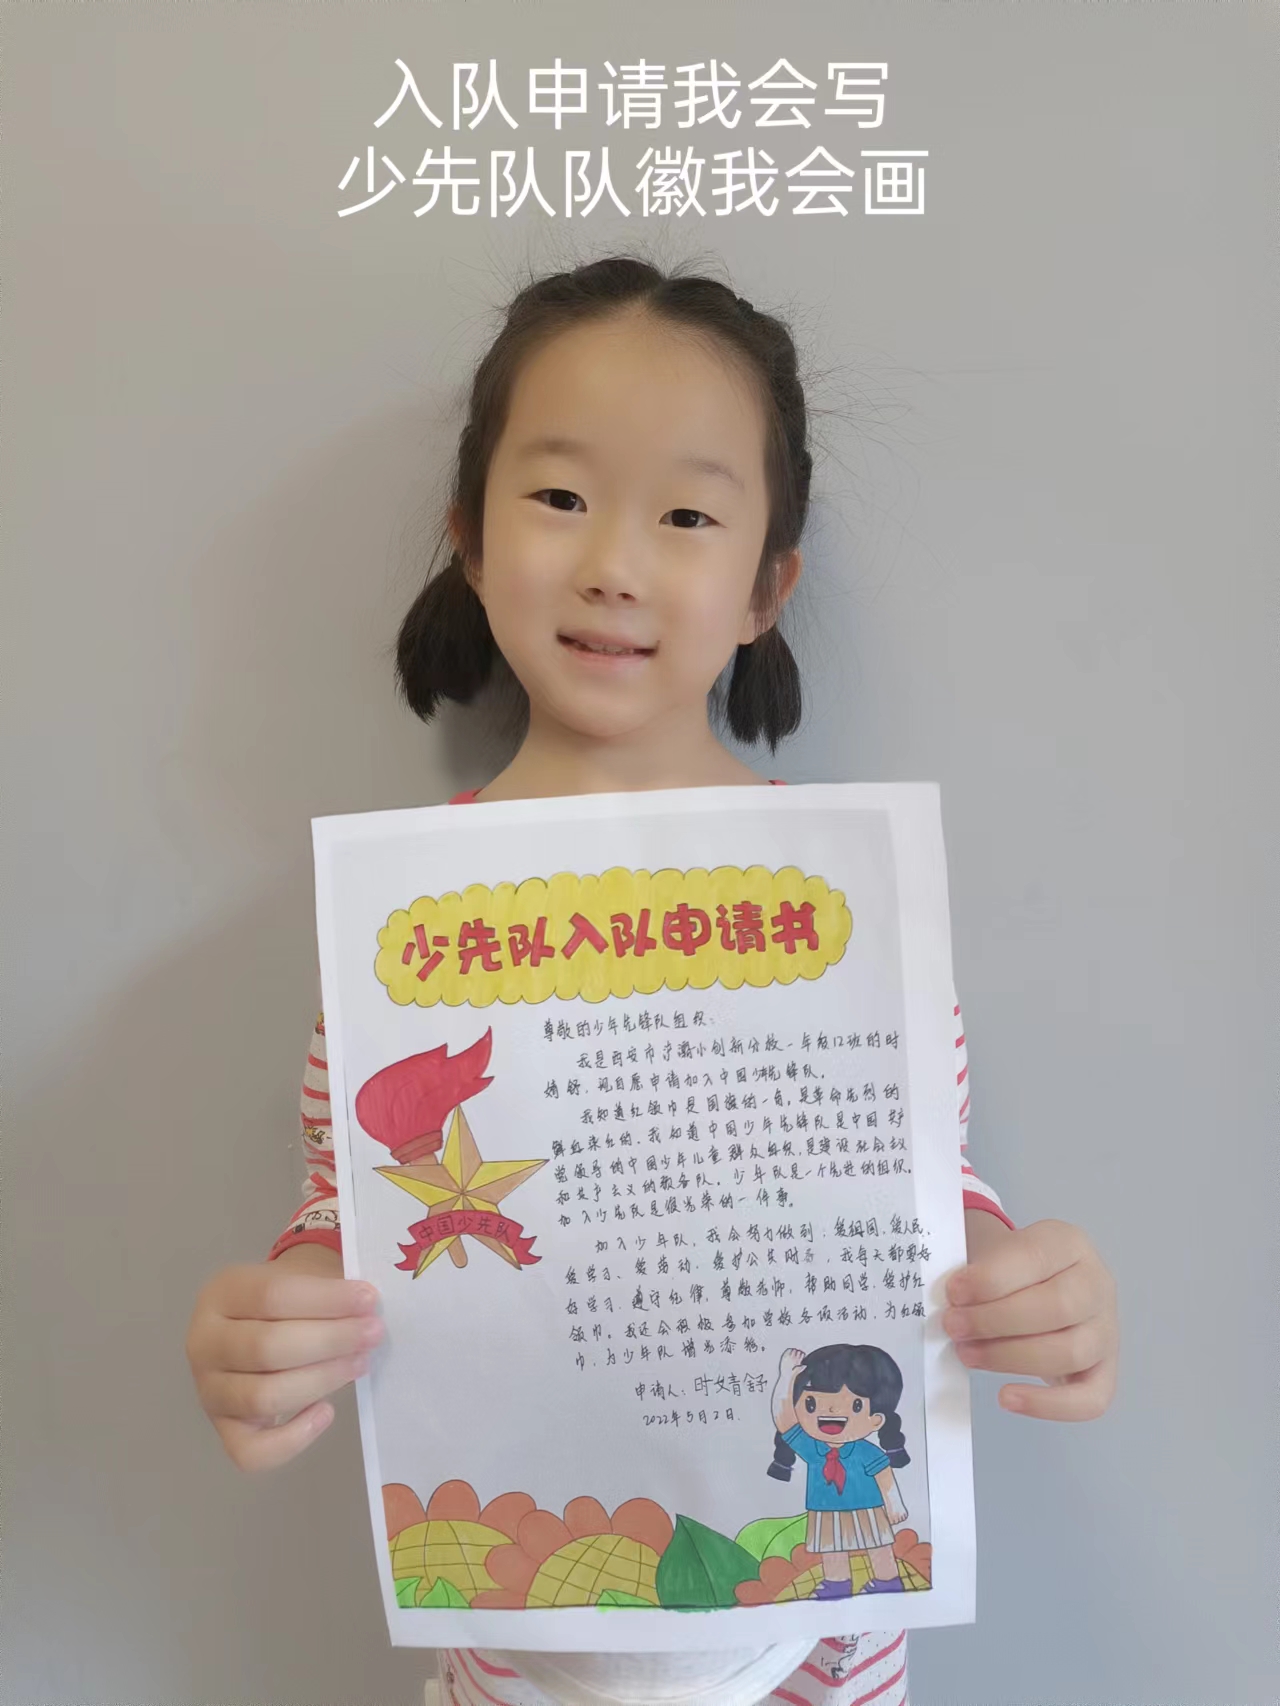 入队申请我会写
少先队队徽我会画
少先队入队申请书
尊敬的少年先锋队组织：
我是西安市浐灞小创新分校一年级12班的时
婧舒，现自愿申请加入中国少年先锋队。
我知道红领巾是国旗的一角，是革命先烈的
鲜血染红的，我知道中国少年先锋队是中国共产
党领导的中国少年儿童群众组织，是建设社会主义
和共产主义的预备队。少年队是一个先进的组织。
加入少先队是很光荣的一件事。
加入少年队，我会努力做到：爱祖国、爱人民、
爱学习、爱劳动、爱护公共财产，我每天都要好
好学习，遵守纪律，尊敬老师，帮助同学，爱护红
领巾。我还会积极参加学校各项活动，为红领
巾、为少年队增光添彩。
申请人：时婧舒
2022年5月2日.
中国少先队